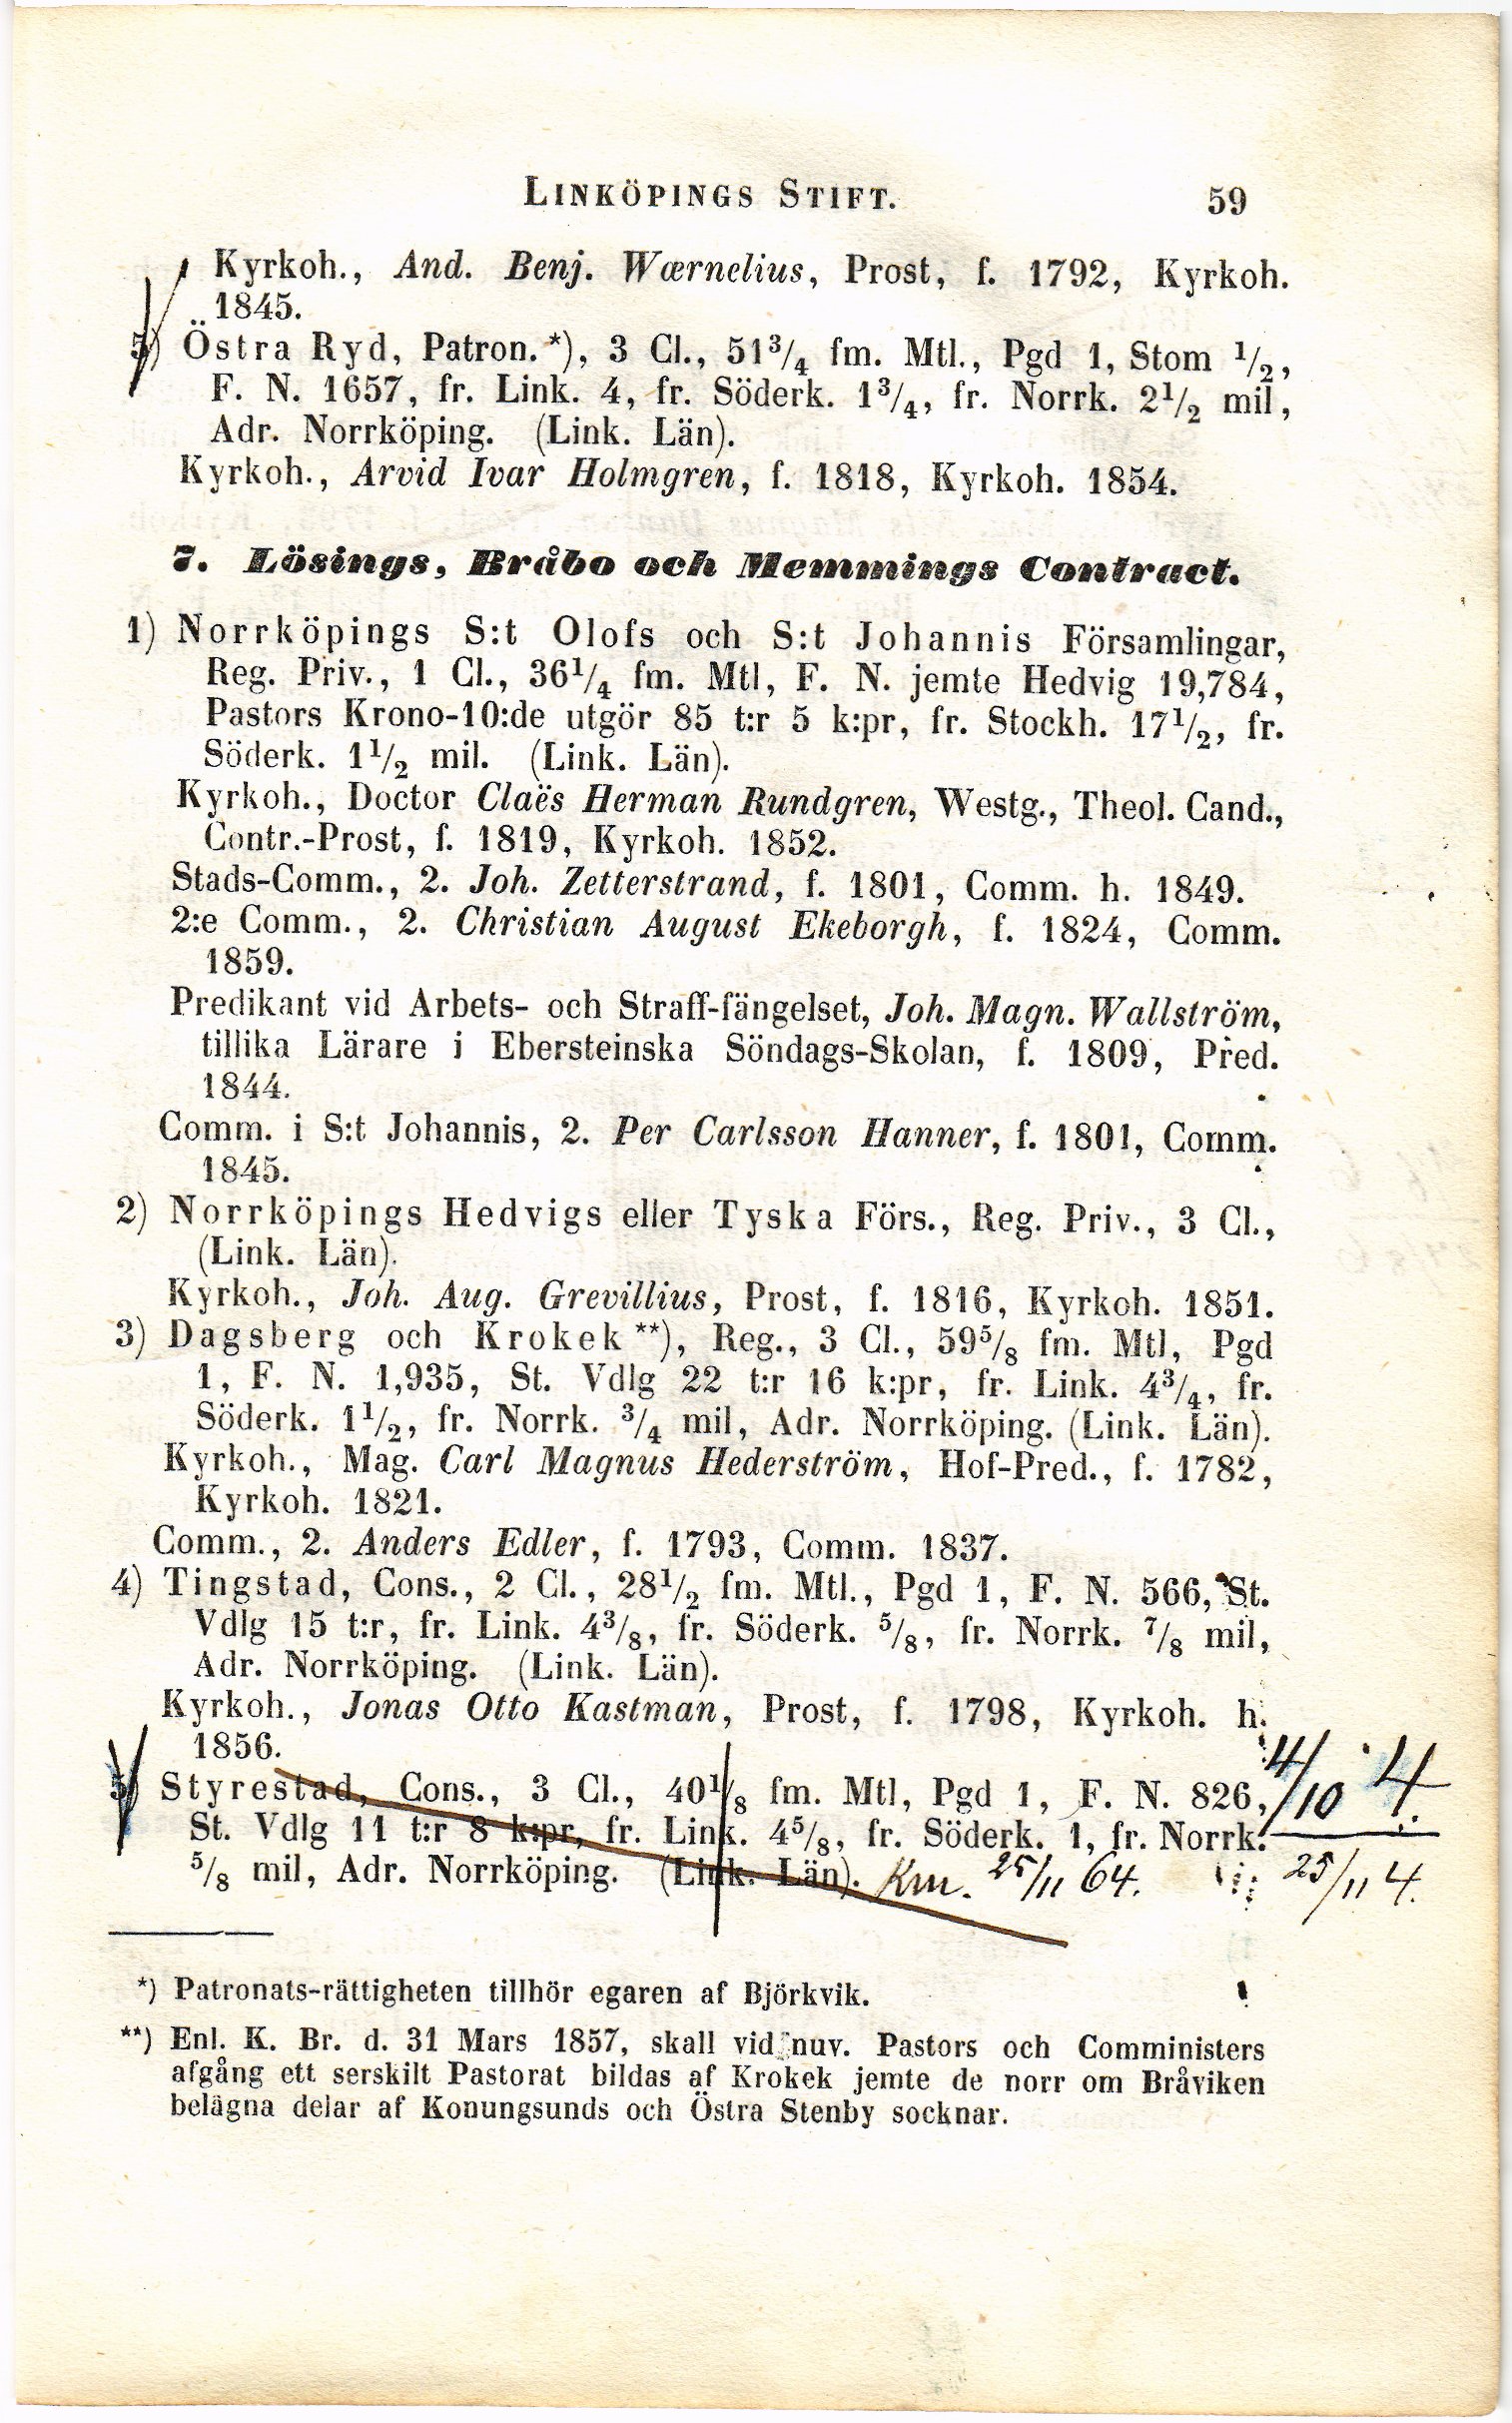 LINKÖPINGS STIFT. 59
Kyrkoh., And. Benj. Wærnelius, Prost, f. 1792, Kyrkoh.
1845.
5) Östra Ryd, Patron. *), 3 Cl., 51 3/4 fm. Mtl., Pgd 1, Stom 1/2,
F. N. 1657, fr. Link. 4, fr. Söderk. 1 3/4, fr. Norrk. 2 1/2 mil,
Adr. Norrköping. (Link. Län).
Kyrkoh., Arvid Ivar Holmgren, f. 1818, Kyrkoh. 1854.
7. Lösings, Bråbo och Memmings Contract.
1) Norrköpings S:t Olofs och S:t Johannis Församlingar,
Reg. Priv., 1 Cl., 36 1/4 fm. Mtl, F. N. jemte Hedvig 19,784,
Pastors Krono-10:de utgör 85 t:r 5 k:pr, fr. Stockh. 17 1/2, fr.
Söderk. 1 1/2 mil. (Link. Län).
Kyrkoh., Doctor Claës Herman Rundgren, Westg., Theol. Cand.,
Contr.-Prost, f. 1819, Kyrkoh. 1852.
Stads-Comm., 2. Joh. Zetterstrand, f. 1801, Comm. h. 1849.
2:e Comm., 2. Christian August Ekeborgh, f. 1824, Comm.
1859.
Predikant vid Arbets- och Straff-fängelset, Joh. Magn. Wallström,
tillika Lärare i Ebersteinska Söndags-Skolan, f. 1809, Pred.
1844.
Comm. i S:t Johannis, 2. Per Carlsson Hanner, f. 1801, Comm.
1845.
2) Norrköpings Hedvigs eller Tyska Förs., Reg. Priv., 3 Cl.,
(Link. Län).
Kyrkoh., Joh. Aug. Grevillius, Prost, f. 1816, Kyrkoh. 1851.
3) Dagsberg och Krokek **), Reg., 3 Cl., 59 5/8 fm. Mtl, Pgd
1, F. N. 1,935, St. Vdlg 22 t:r 16 k:pr, fr. Link. 4 3/4, fr.
Söderk. 1 1/2, fr. Norrk. 3/4 mil, Adr. Norrköping. (Link. Län).
Kyrkoh., Mag. Carl Magnus Hederström, Hof-Pred., f. 1782,
Kyrkoh. 1821.
Comm., 2. Anders Edler, f. 1793, Comm. 1837.
4) Tingstad, Cons., 2 Cl., 28 1/2 fm. Mtl., Pgd 1, F. N. 566, St.
Vdlg 15 t:r, fr. Link. 4 3/8, fr. Söderk. 5/8, fr. Norrk. 7/8 mil,
Adr. Norrköping. (Link. Län).
Kyrkoh., Jonas Otto Kastman, Prost, f. 1798, Kyrkoh. h.
1856.
5) Styrestad, Cons., 3 Cl., 40 1/8 fm. Mtl, Pgd 1, F. N. 826, 4/10 4.
St. Vdlg 11 t:r 8 k:pr, fr. Link. 4 5/8, fr. Söderk. 1, fr. Norrk.
5/8 mil, Adr. Norrköping. (Link. Län). Km. 25/11 64. 25/11 4.
*) Patronats-rättigheten tillhör egaren af Björkvik.
**) Enl. K. Br. d. 31 Mars 1857, skall vid nuv. Pastors och Comministers
afgång ett serskilt Pastorat bildas af Krokek jemte de norr om Bråviken
belägna delar af Konungsunds och Östra Stenby socknar.